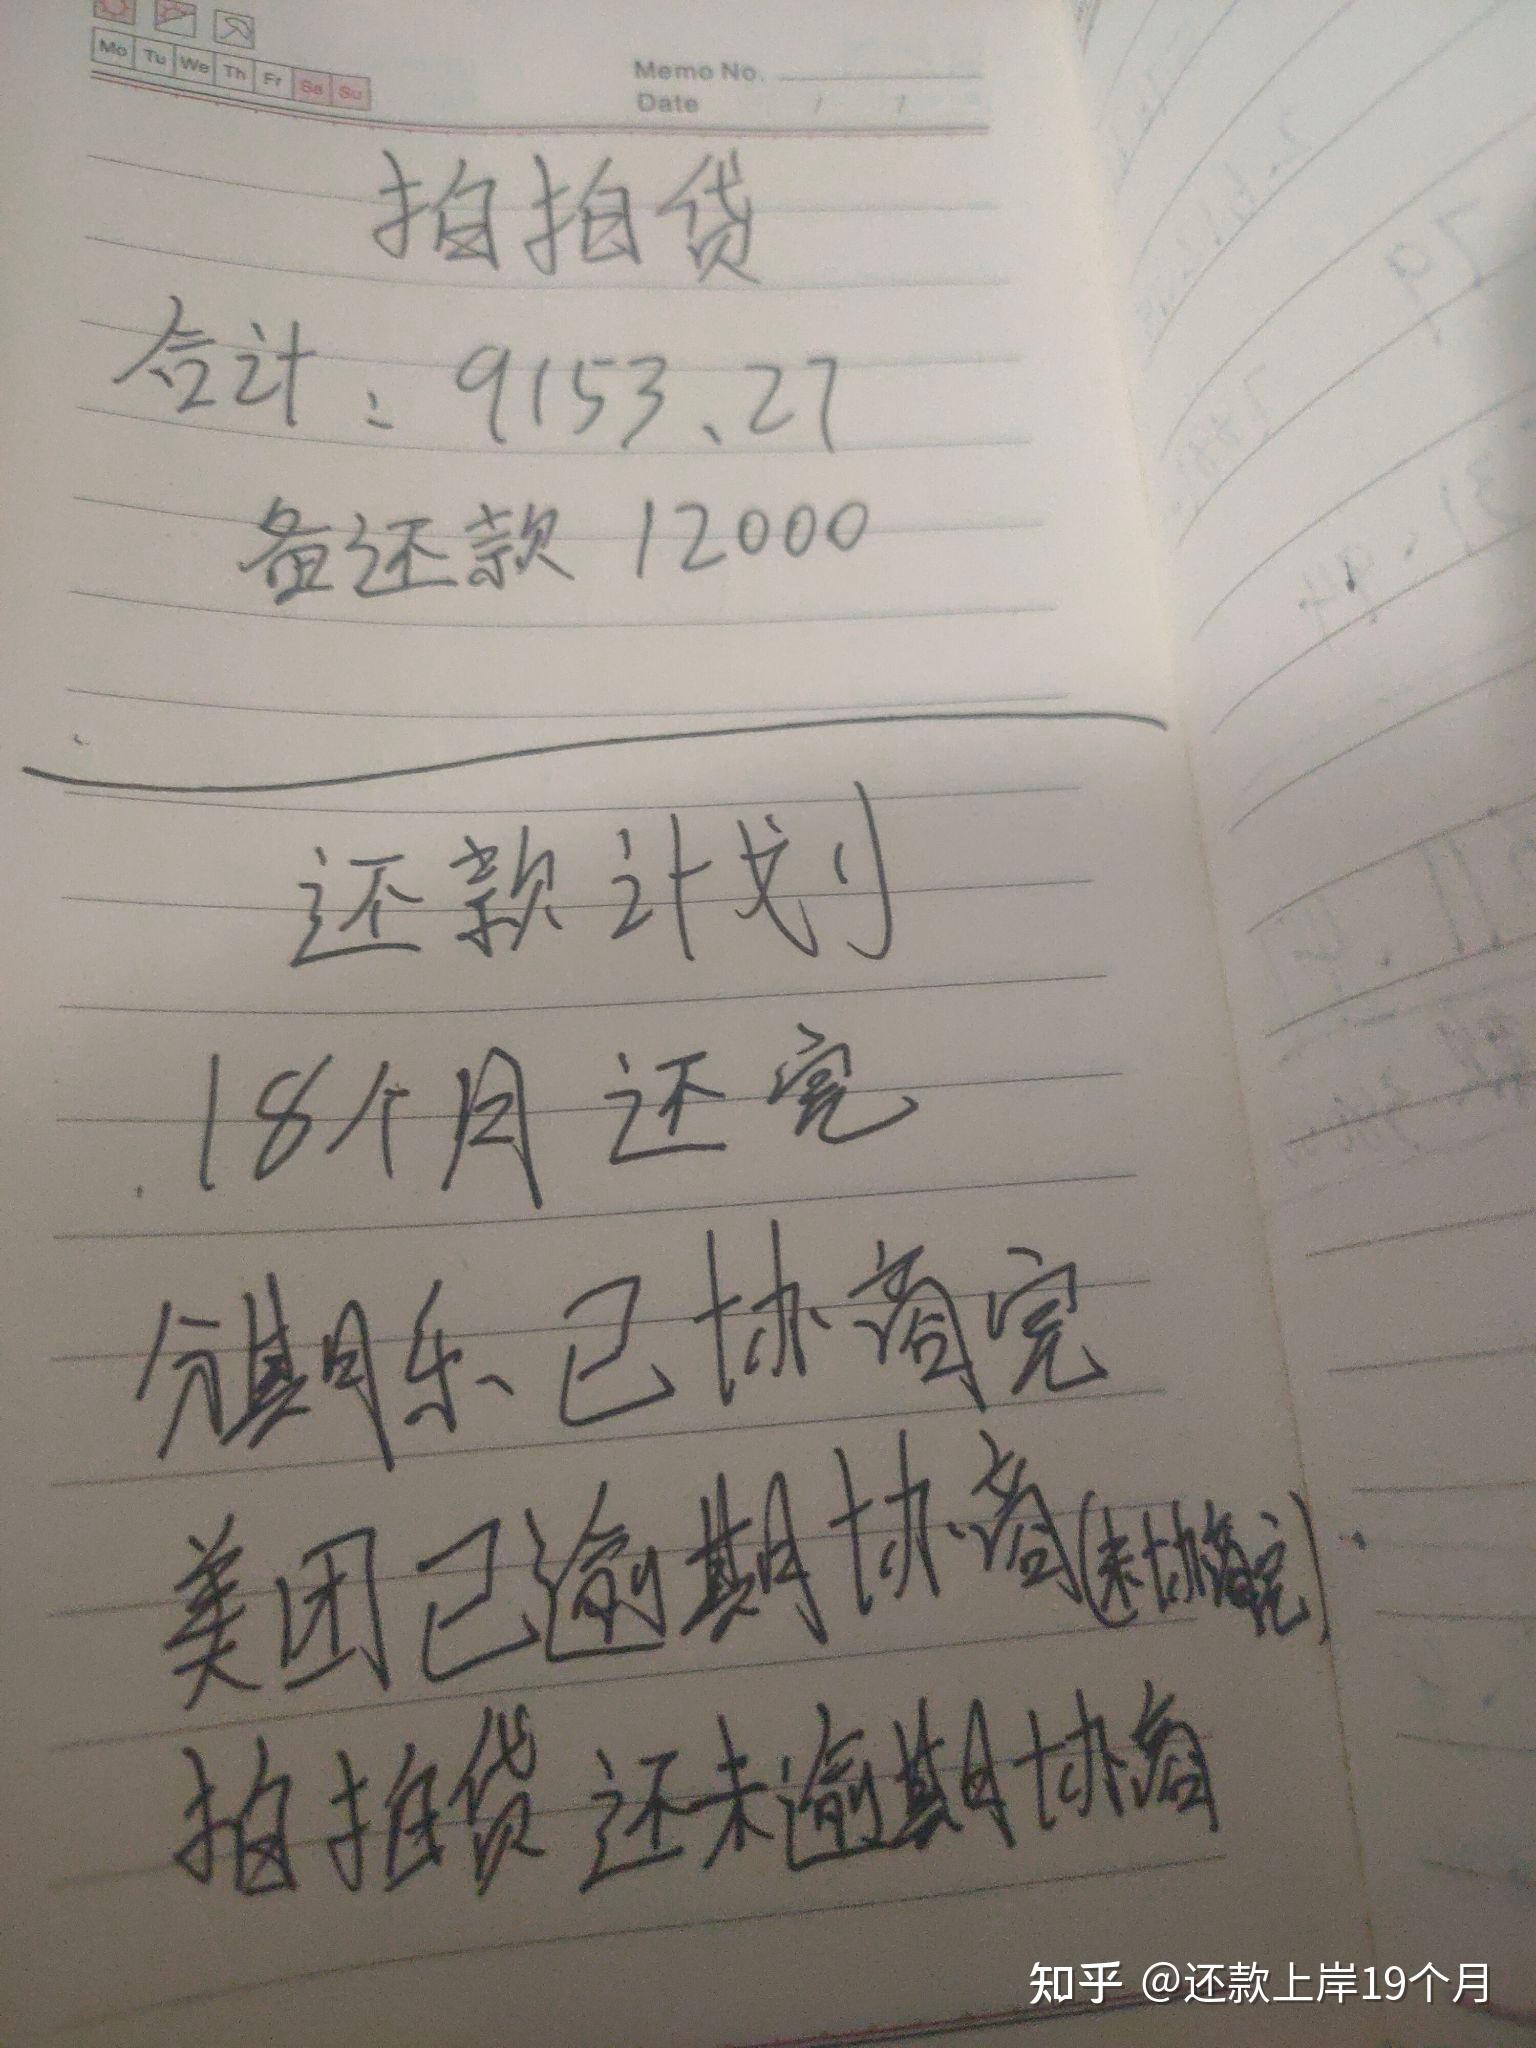 Mo Tu We Th Fr Sa Su
Memo No.
Date / /
拍拍贷
合计:9153.27
备还款 12000
还款计划
18个月还完
分期乐、已协商完
美团已逾期协商(未协商完)
拍拍贷还未逾期协商
知乎 @还款上岸19个月